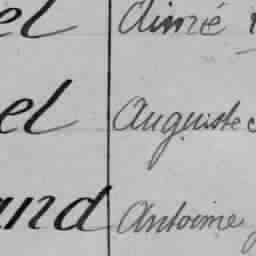 el Aimé
el Auguste
and Antoine